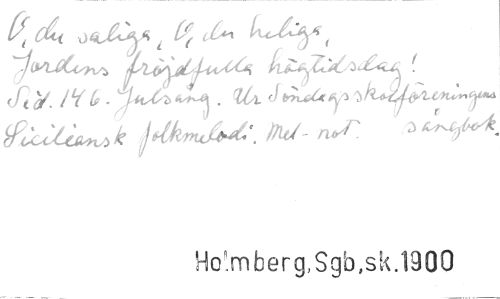 O, du saliga, O, du heliga,
Jordens fröjdfulla högtidsdag!
Sid. 146. Julsång. Ur Söndagsskolföreningens
Siciliansk folkmelodi. Mel-not. sångbok.
Holmberg,Sgb,sk.1900